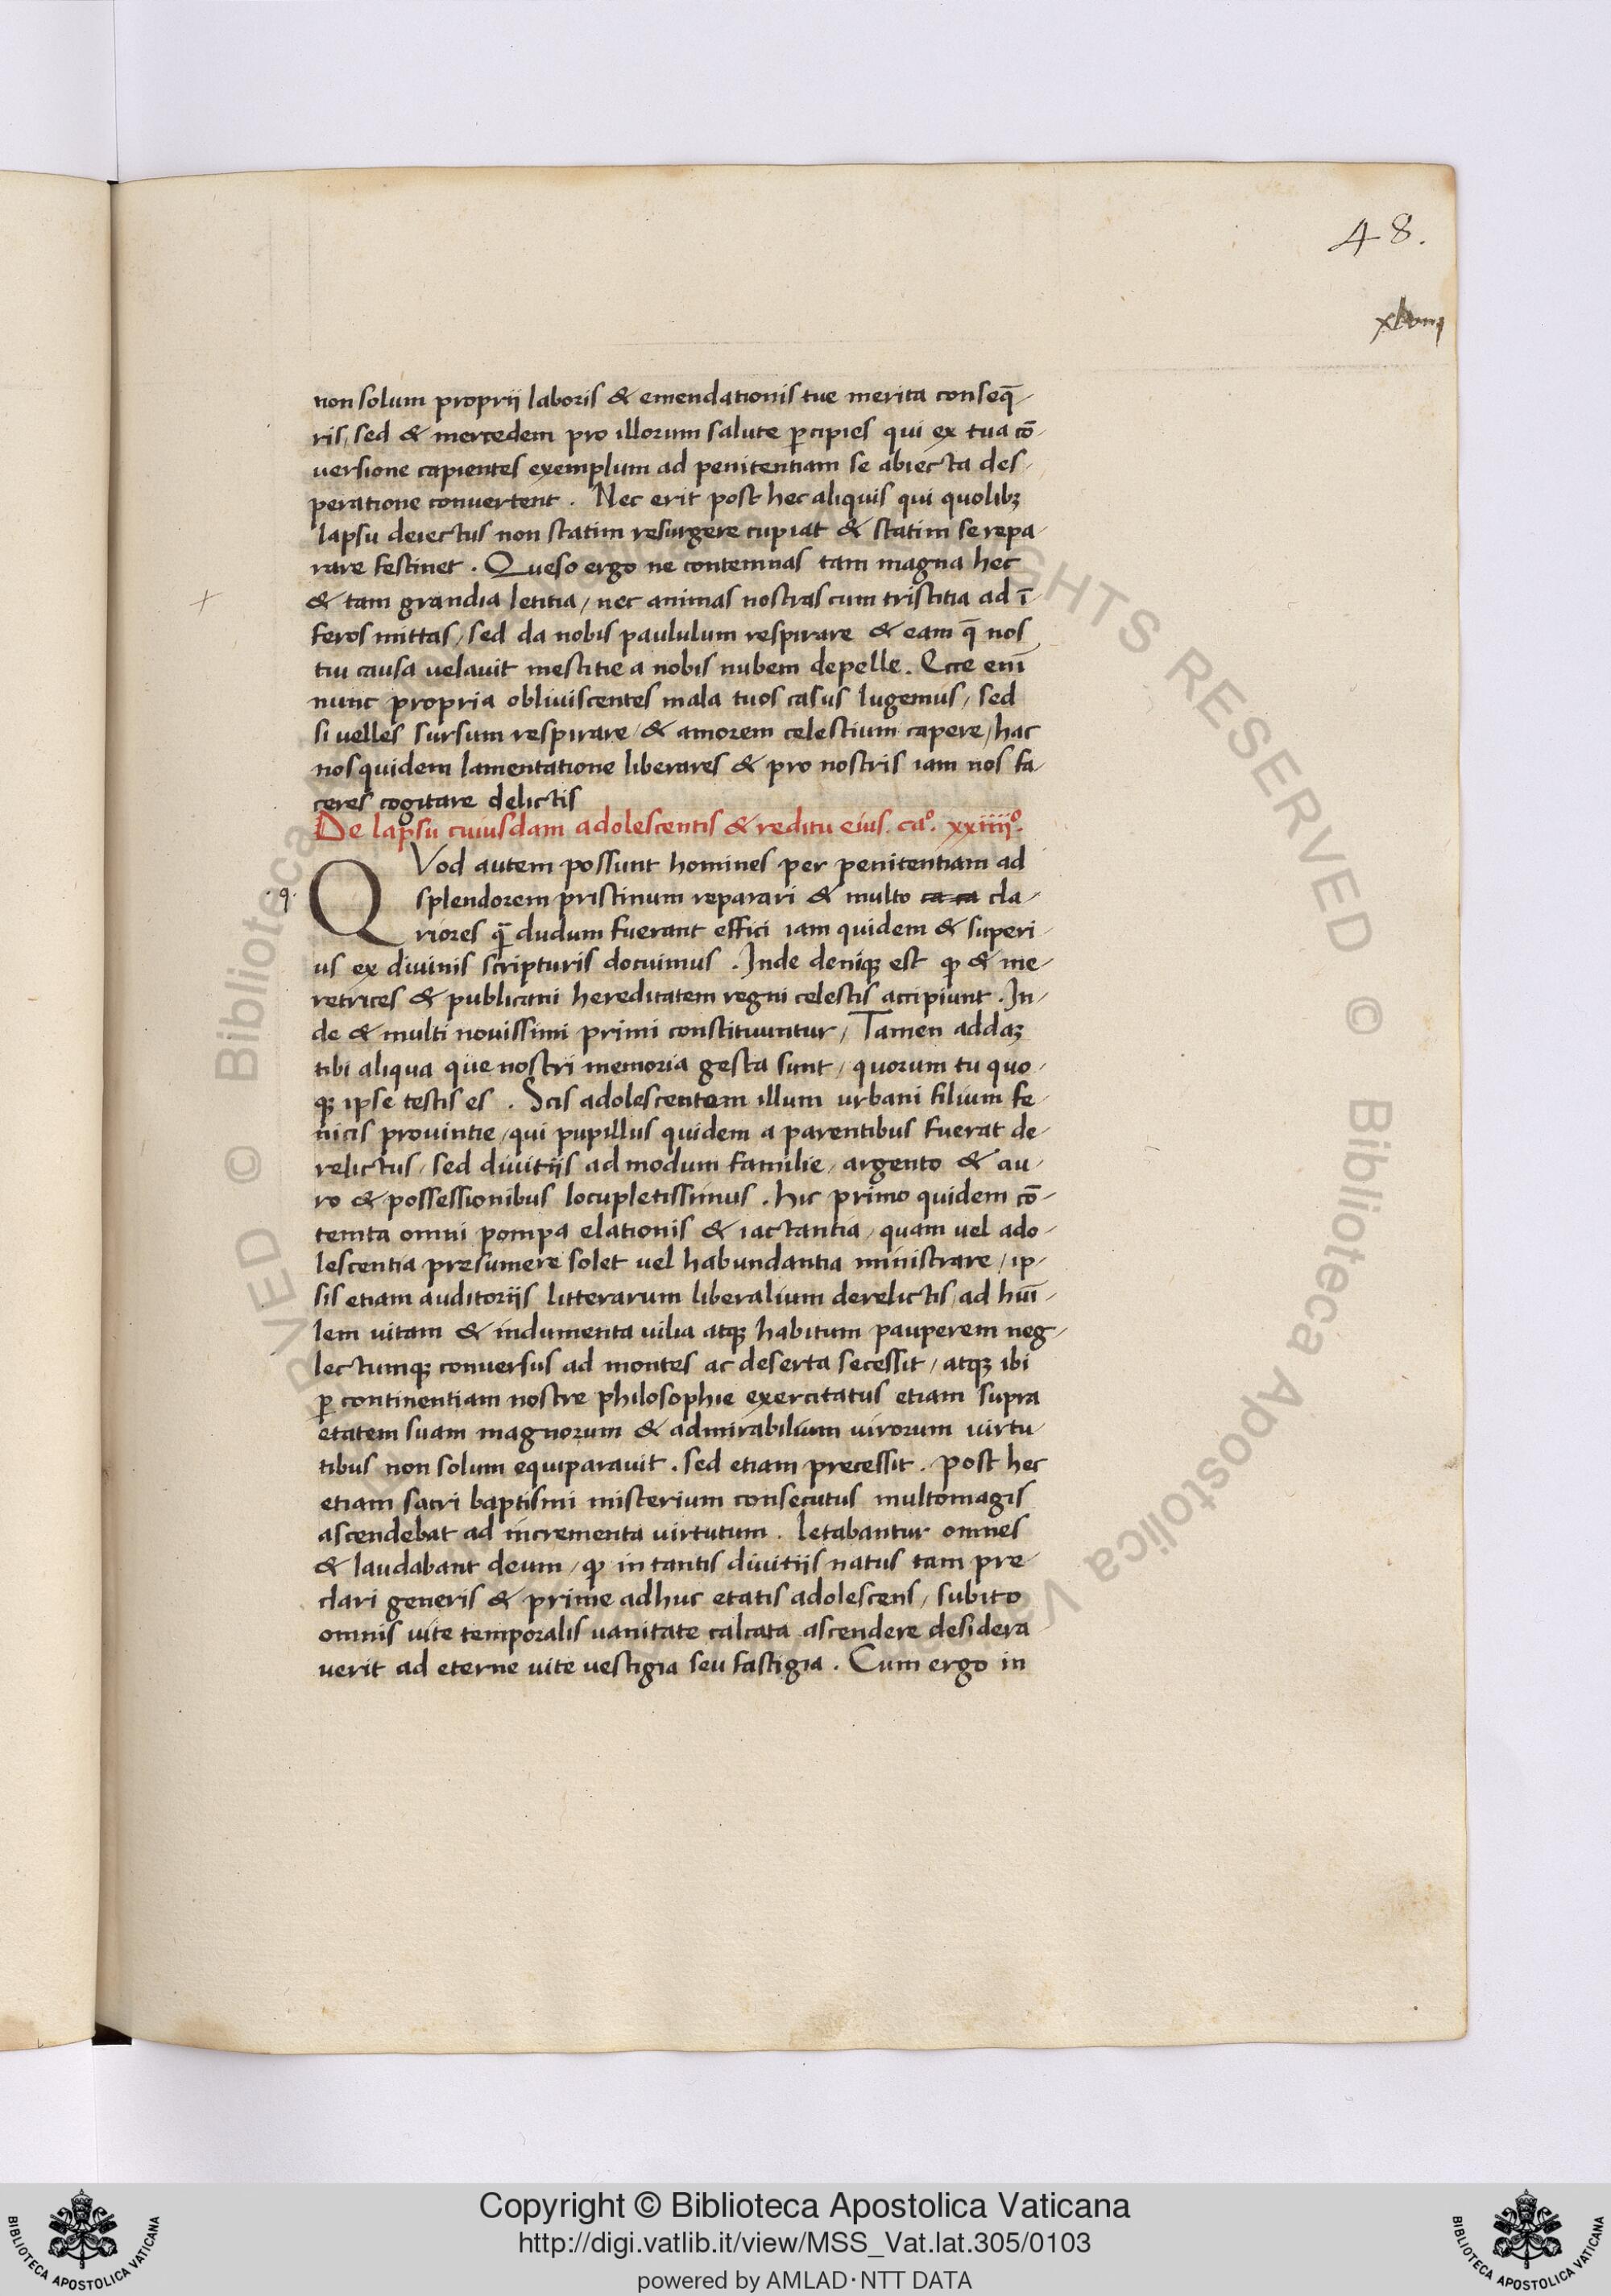 48.
xlviii
non solum proprij laboris & emendationis tue merita conseq̄-
ris, sed & mercedem pro illorum salute ꝑcipies qui ex tua cō-
uersione capientes exemplum ad penitentiam se abiecta des-
peratione conuertent. Nec erit post hec aliquis qui quolibꝫ
lapsu deiectus non statim resurgere cupiat & statim se repa-
rare festinet. Queso ergo ne contemnas tam magna hec
& tam grandia letitia, nec animas nostras cum tristitia ad ī
feros mittas, sed da nobis paululum respirare & eam q̄ nos
tui causa uelauit mestitie a nobis nubem depelle. Ecce enī
nunc propria obliuiscentes mala tuos casus lugemus, sed
si uelles sursum respirare, & amorem celestium capere, hac
nos quidem lamentatione liberares & pro nostris iam nos fa-
ceres cogitare delictis
De lapsu cuiusdam adolescentis & reditu eius. caº. xxiiijº.
.q.
QVod autem possunt homines per penitentiam ad
splendorem pristinum reparari & multo ca ca cla-
riores q̄ dudum fuerant effici iam quidem & superi-
us ex diuinis scripturis docuimus. Inde deniqꝫ est ꝙ & me-
retrices & publicani hereditatem regni celestis accipiunt. In-
de & multi nouissimi primi constituuntur, Tamen addaꝫ
tibi aliqua que nostri memoria gesta sunt, quorum tu quo-
qꝫ ipse testis es. Scis adolescentem illum urbani filium fe-
nicis prouintie, qui pupillus quidem a parentibus fuerat de-
relictus, sed diuitijs ad modum familie, argento & au-
ro & possessionibus locupletissimus. hic primo quidem cō-
temta omni pompa elationis & iactantia, quam uel ado-
lescentia presumere solet uel habundantia ministrare, ip-
sis etiam auditorijs litterarum liberalium derelictis, ad huī-
lem uitam & indumenta uilia atqꝫ habitum pauperem neg-
lectumqꝫ conuersus ad montes ac deserta secessit, atqꝫ ibi
ꝑ continentiam nostre philosophie exercitatus etiam supra
etatem suam magnorum & admirabilium uirorum uirtu-
tibus non solum equiparauit. sed etiam precessit. post hec
etiam sacri baptismi misterium consecutus multomagis
ascendebat ad incrementa uirtutum. letabantur omnes
& laudabant deum, ꝙ in tantis diuitijs natus tam pre-
clari generis & prime adhuc etatis adolescens, subito
omnis uite temporalis uanitate calcata ascendere desidera
uerit ad eterne uite uestigia seu fastigia. Cum ergo in
Copyright © Biblioteca Apostolica Vaticana
http://digi.vatlib.it/view/MSS_Vat.lat.305/0103
powered by AMLAD·NTT DATA
BIBLIOTECA APOSTOLICA VATICANA
BIBLIOTECA APOSTOLICA VATICANA